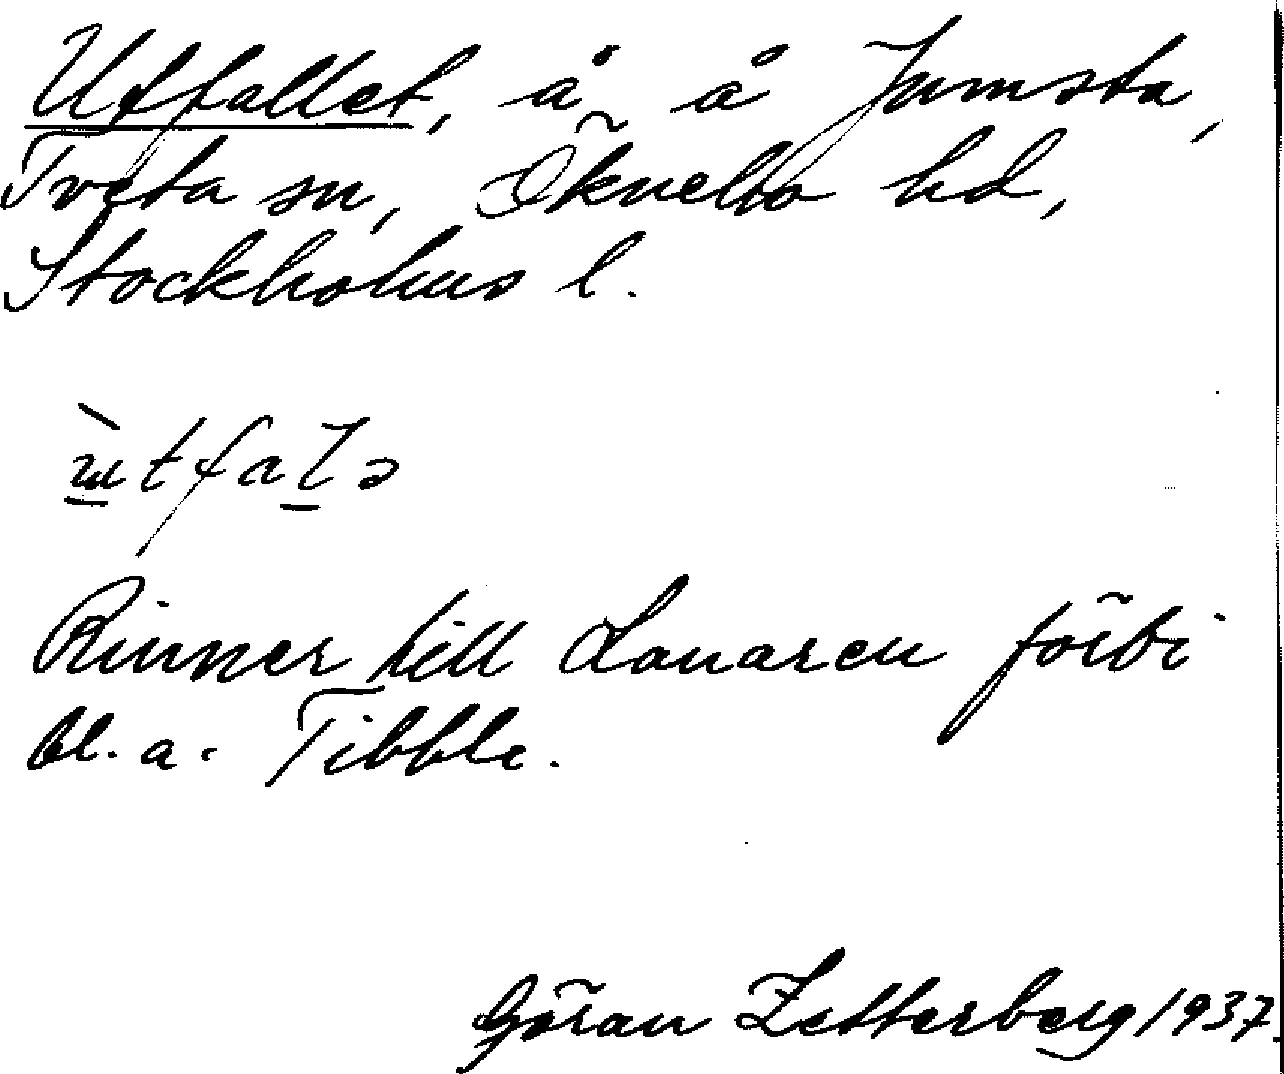 Utfallet, å å Jumsta,
Tveta sn, Öknebo hd,
Stockholms l.
ùtfalə
Rinner till Lanaren förbi
bl. a. Tibble.
Göran Zetterberg 1937.